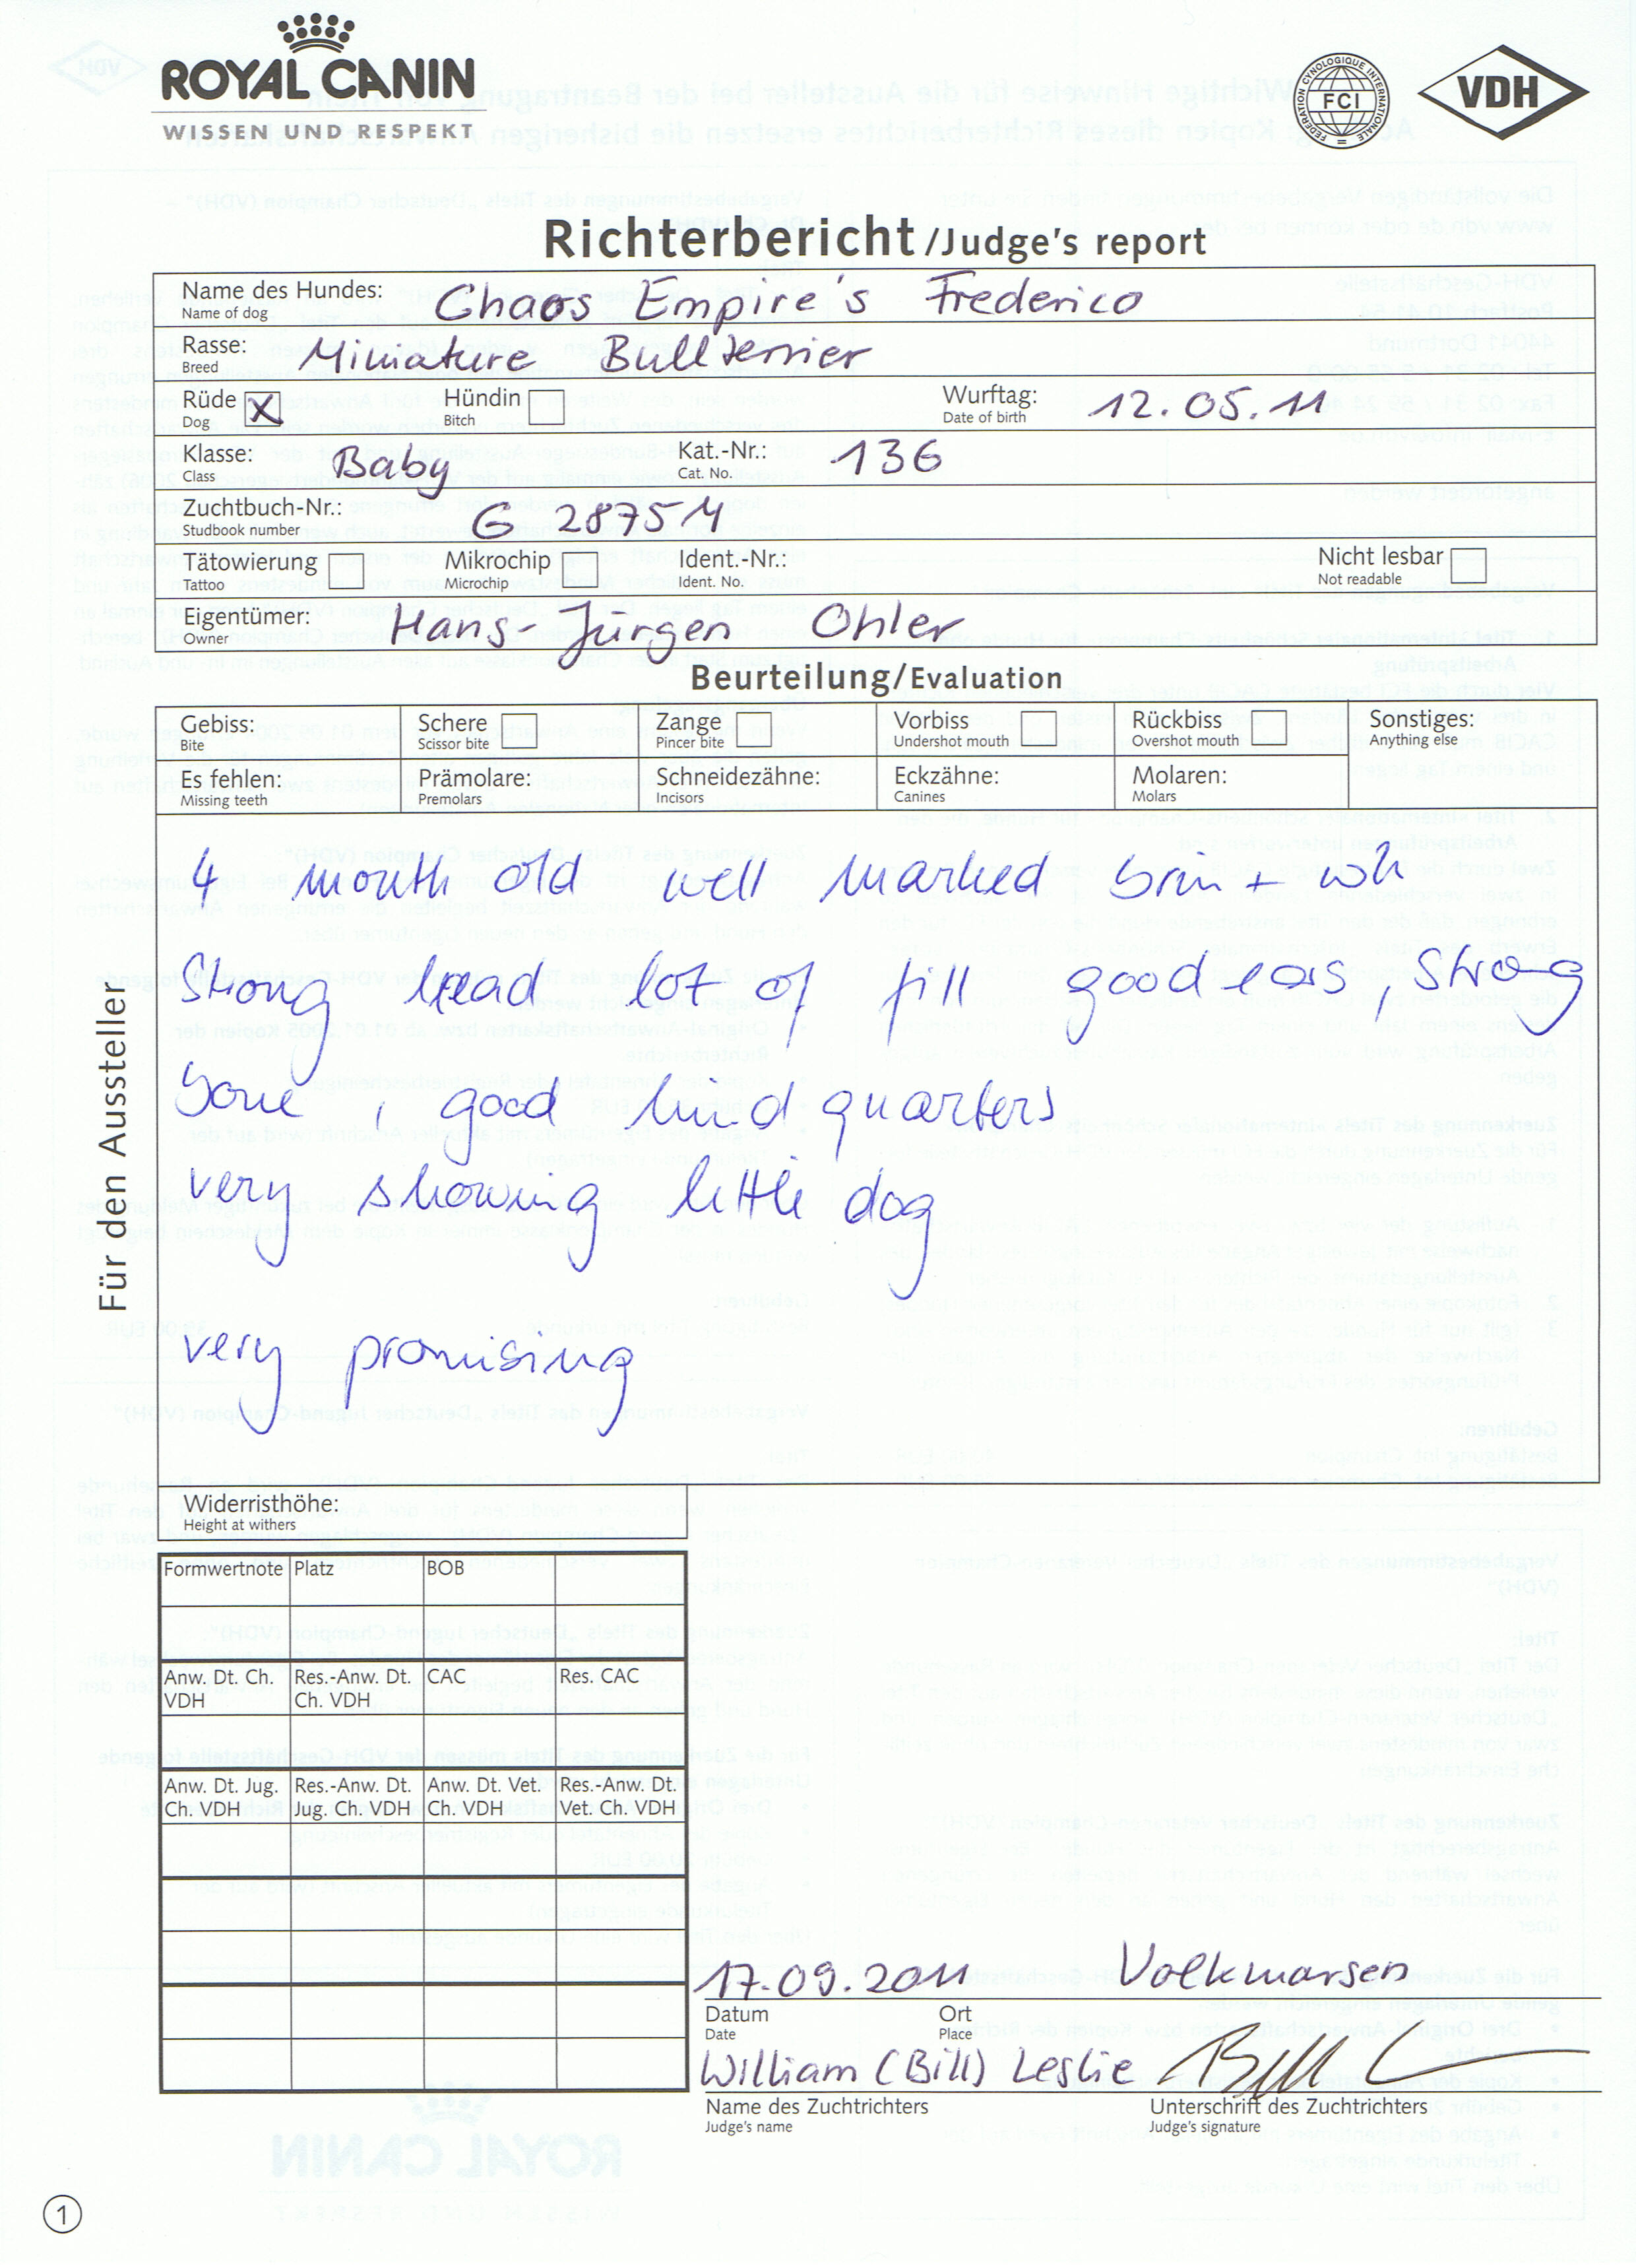 ROYAL CANIN
WISSEN UND RESPEKT
FEDERATION CYNOLOGIQUE INTERNATIONALE
FCI
VDH
Richterbericht/Judge's report
Name des Hundes: Chaos Empire's Frederico
Name of dog
Rasse: Miniature Bullterrier
Breed
Rüde X Hündin Wurftag: 12.05.11
Dog Bitch Date of birth
Klasse: Baby Kat.-Nr.: 136
Class Cat. No.
Zuchtbuch-Nr.: G 2875 M
Studbook number
Tätowierung Mikrochip Ident.-Nr.: Nicht lesbar
Tattoo Microchip Ident. No. Not readable
Eigentümer: Hans-Jürgen Ohler
Owner
Beurteilung/Evaluation
Gebiss: Schere Zange Vorbiss Rückbiss Sonstiges:
Bite Scissor bite Pincer bite Undershot mouth Overshot mouth Anything else
Es fehlen: Prämolare: Schneidezähne: Eckzähne: Molaren:
Missing teeth Premolars Incisors Canines Molars
Für den Aussteller
4 month old well marked brin + wh
Strong head lot of fill good ears, strog
bone, good hind quarters
very showing little dog
very promising
Widerristhöhe:
Height at withers
Formwertnote Platz BOB
Anw. Dt. Ch. Res.-Anw. Dt. CAC Res. CAC
VDH Ch. VDH
Anw. Dt. Jug. Res.-Anw. Dt. Anw. Dt. Vet. Res.-Anw. Dt.
Ch. VDH Jug. Ch. VDH Ch. VDH Vet. Ch. VDH
17.09.2011 Volkmarsen
Datum Ort
Date Place
William (Bill) Leslie
Name des Zuchtrichters Unterschrift des Zuchtrichters
Judge's name Judge's signature
1